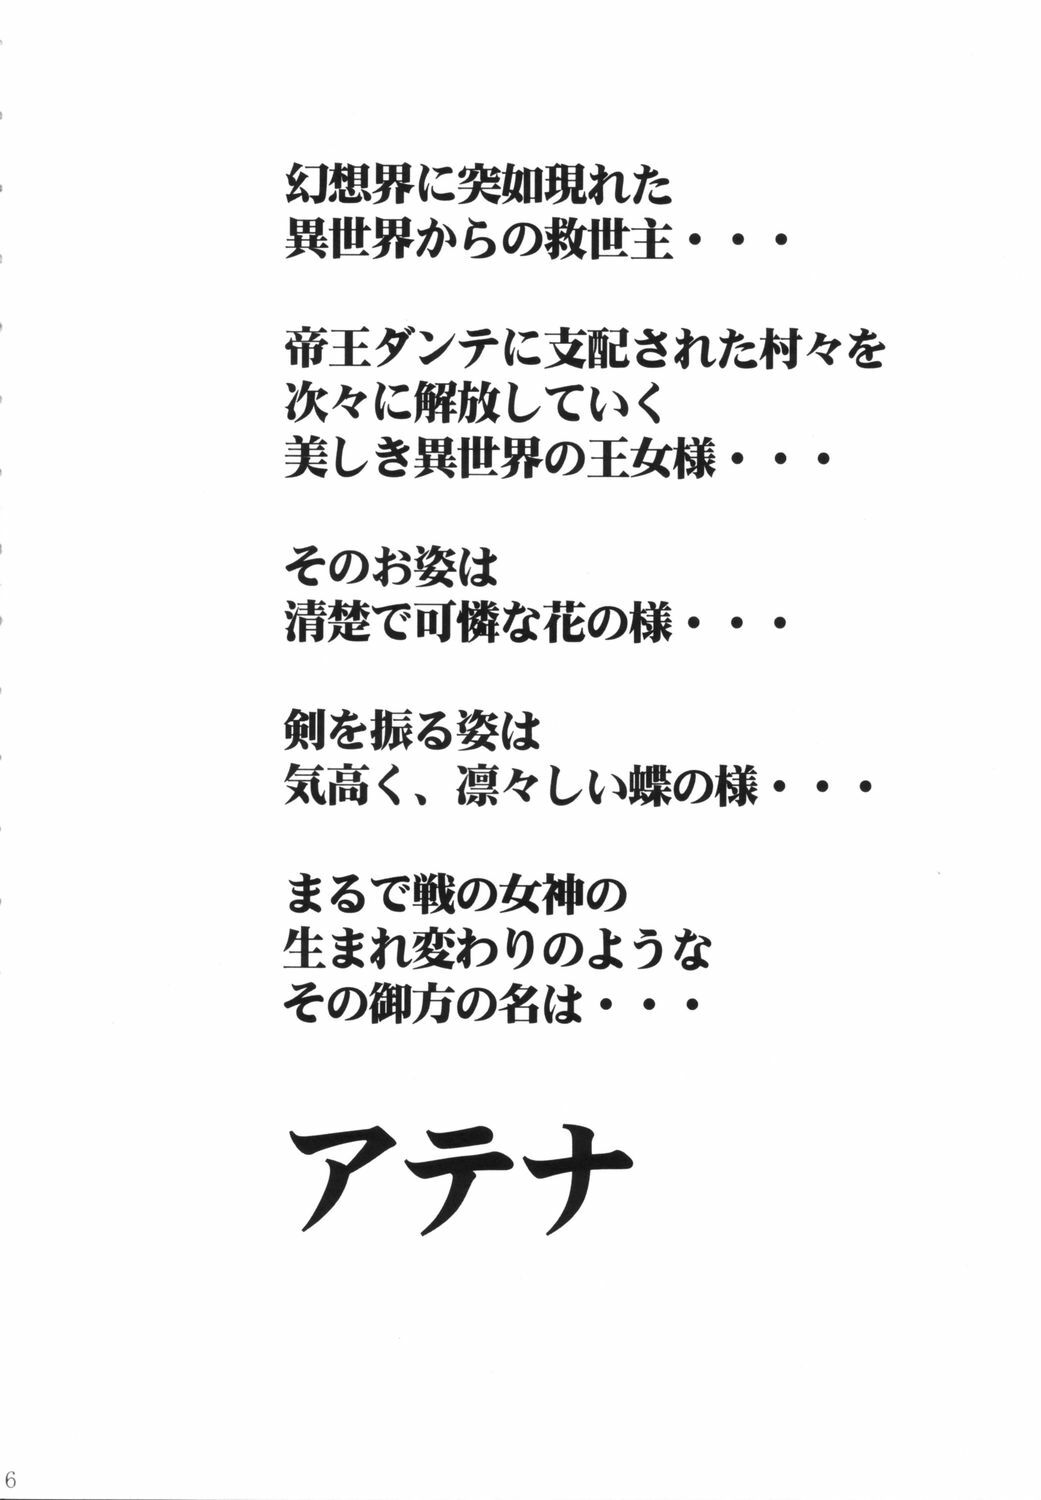 幻想界に突如現れた
異世界からの救世主・・・
帝王ダンテに支配された村々を
次々に解放していく
美しき異世界の王女様・・・
そのお姿は
清楚で可憐な花の様・・・
剣を振る姿は
気高く、凛々しい蝶の様・・・
まるで戦の女神の
生まれ変わりのような
その御方の名は・・・
アテナ
6